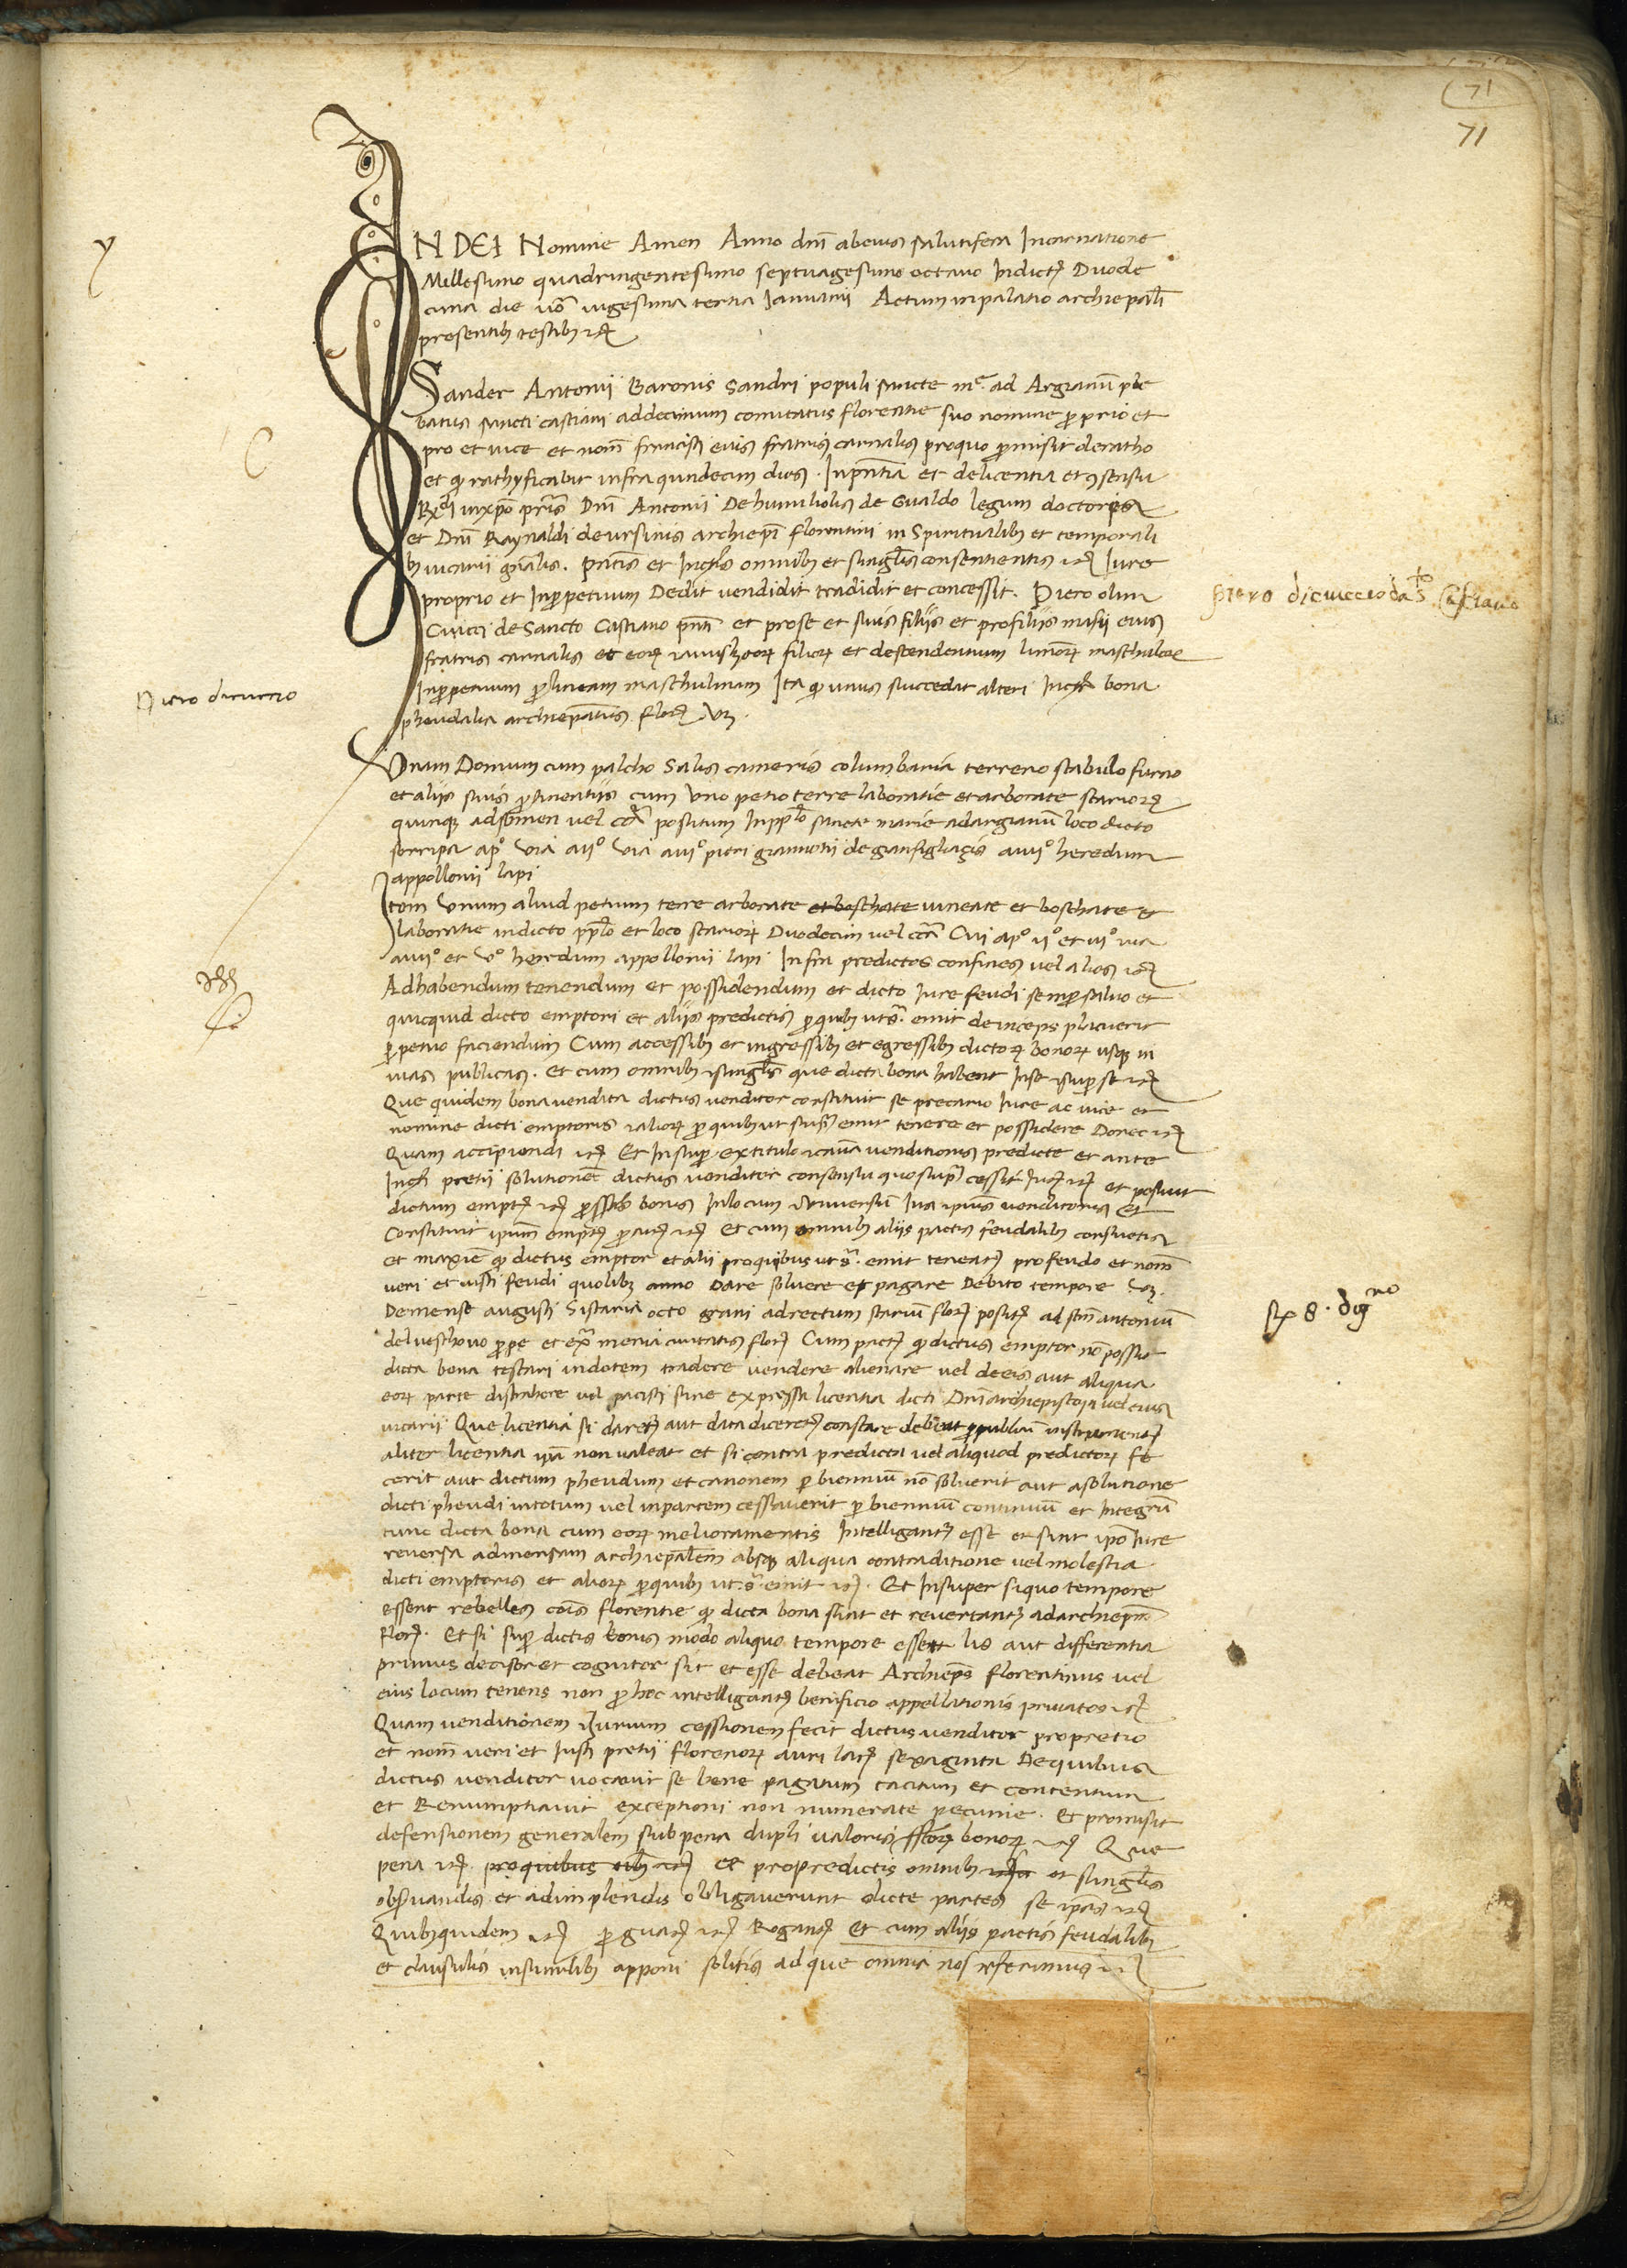 71
71
IN DEI Nomine Amen Anno dnī abeius salutifera Incarnatione
Millesimo quadringentesimo septuagesimo octavo Indictꝭ Duode
cima die vō vigesima tertia Januarii Actum in palatio archiepali
presentibꝫ testibꝫ
Sander Antonii Baronis Sandri populi sancte mᵉ ad Argianū ple
batus sancti castiani addecimum comitatus florentie suo nomine proprio et
pro et vice et noīe francisci eius fratris carnalis proquo promisit deratho
et qꝫ rathyficabit infra quindecim dies. Inpn̄tia et delicentia et ꝯsensu
Rx̄di inxp̄o pr̄is Dnī Antonii Dehumiliolis de Gualdo legum doctoris
et Dnī Raynaldi deursinis archiepī florentini in Spiritualibꝫ et temporali
bꝫ vicarii gn̄alis. pn̄tis et omnibꝫ et singlis consentientis Iure
proprio et Inꝑpetuum Dedit vendidit tradidit et concessit. Piero olim
Cucci de Sancto Castiano pn̄ti et prose et suis filiis et profiliis eius
fratris carnalis et eorꝝ filiorꝝ et descendentium maschulor
Inꝑpetuum ꝑ lineam maschulinam Ita qꝫ unus succedat alteri bona
pheudalia archiepatus florꝭ vꝫ.
Piero dicuccio da Sto Casciano
Piero dicuccio
Unam Domum cum palcho Salis cameris columbaria terreno stabulo furno
et aliis suis ꝑtinentiis cum uno petio terre laboratie et arborate stariorꝝ
quinqꝫ adsemen vel positum Inpplo sancte marie adargianū loco dicto
sorripa apᵒ via aiiᵒ via aiiiᵒ pieri giannotii degianfigliazis aiiiiᵒ heredum
appollonii lapi
Item unum aliud petium terre arborate et boschate vineate et boschate et
laboratie indicto pplo et loco starorꝝ Duodecim vel Cui apᵒ iiᵒ et iiiᵒ via
aiiiiᵒ et vᵒ heredum appollonii lapi Infra predictos confines vel alios
Ad habendum tenendum et possidendum et dicto Iure feudi semꝑ salvo et
quicquid dicto emptori et aliis predictis ꝓquibꝫ uts. emit deinceps placuerit
ꝑpetuo faciendum Cum accessibꝫ et ingressibꝫ et egressibꝫ dictorꝝ bonorꝝ usqꝫ in
vias publicas. Et cum omnibꝫ singlis que dicta bona habent
Que quidem bona vendita dictus venditor constituit se precario Iure ac vice et
nomine dicti emptoris aliorꝝ ꝓ quibꝫ ut supra emit tenere et possidere Donec
Quam accipiendi Et Insuꝑ ex titulo causa venditionis predicte et ante
pretii solutionē dictus venditor consensu quo supra cessit et posuit
dictum emptꝭ bonis Inlocum ipsius venditoris Et
Constituit ipsum emptꝭ Et cum omnibꝫ aliis pactis feudalibꝫ consuetis
et maxie qꝫ dictus emptor et alii proquibus uts. emit teneatꝭ profeudo et noīe
veri et iusti feudi quolibꝫ anno Dare solvere et pagare Debito tempore vꝫ.
Demense augusti Sistaria octo grani adrectum starium florꝭ positꝭ ad stm̄ antonium
delveschovo ꝓpe et exa menia civitatis florꝭ Cum pactꝭ qꝫ dictus emptor nō possit
dicta bona testari indotem tradere vendere alienare vel deeis aut aliqua
eorꝝ parte distrahere vel pacisci sine expressa licentia dicti Dnī archiepiscopi vel eius
vicarii Que licentia si daretꝫ aut data diceretꝫ constare debeat ꝑ publicū instrumentꝭ
aliter licentia ipa non valeat et si contra predicta vel aliquod predictorꝝ fe
cerit aut dictum pheudum et canonem ꝑ biennium nō solverit aut asolutione
dicti pheudi intotum vel inpartem cessaverit ꝑ biennium continuum et Integrū
tunc dicta bona cum eorꝝ melioramentis Intelligantꝫ esse et sint ipso Iure
reversa admensam archiepalem absqꝫ aliqua contraditione vel molestia
dicti emptoris et aliorꝝ ꝓquibꝫ uts. emit. Et Insuper siquo tempore
essent rebelles cōis florentie qꝫ dicta bona sint et revertantꝫ adarchiepm
florꝭ. Et si suꝑ dictis bonis modo aliquo tempore esset lis aut differentia
primus decisor et cognitor sit et esse debeat Archieps florentinus vel
eius locum tenens non ꝓ hoc intelligantꝫ benificio appellationis privatos
Quam venditionem Jurium cessionem fecit dictus venditor propretio
et noīe veri et Iusti pretii florenorꝝ auri larꝭ sexaginta Dequibus
dictus venditor vocavit se bene pagatum tacitum et contentum
et Renumptiavit exceptioni non numerate pecunie. Et promisit
defensionem generalem subpena dupli valoris bonorꝝ Que
pena proquibus et propredictis omnibꝫ et singlis
observandis et adimplendis obligaverunt dicte partes se ipas
Quibꝫquidem ꝑ guarꝭ Rogantꝭ Et cum aliis pactis feudalibꝫ
et clausulis insimilibꝫ apponi solitis ad que omnia nos referimus